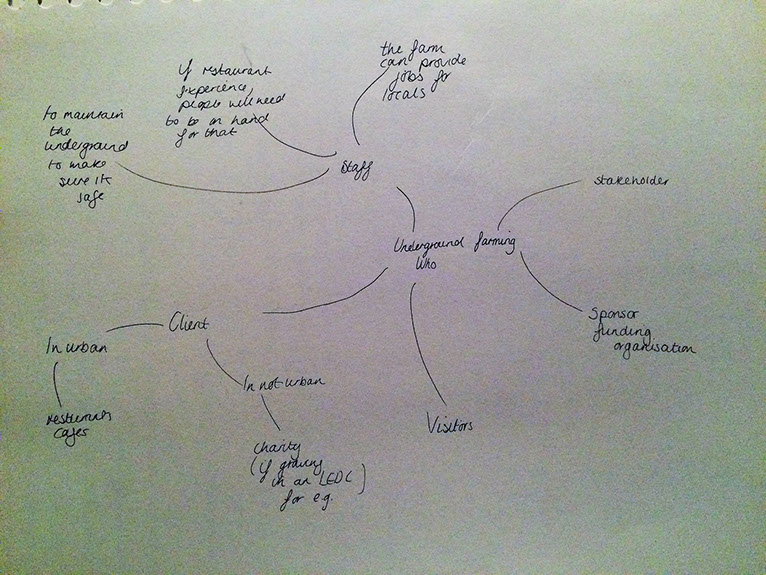 the farm
can provide
jobs for
locals
If restaurant
experience,
people will need
to be on hand
for that
to maintain
the
underground
to make
sure it's
safe
Staff
stakeholder
Underground farming
Who
Sponsor
funding
organisation
Client
In urban
In not urban
cafes
Visitors
charity
(if growing
in an LEDC)
for e.g.